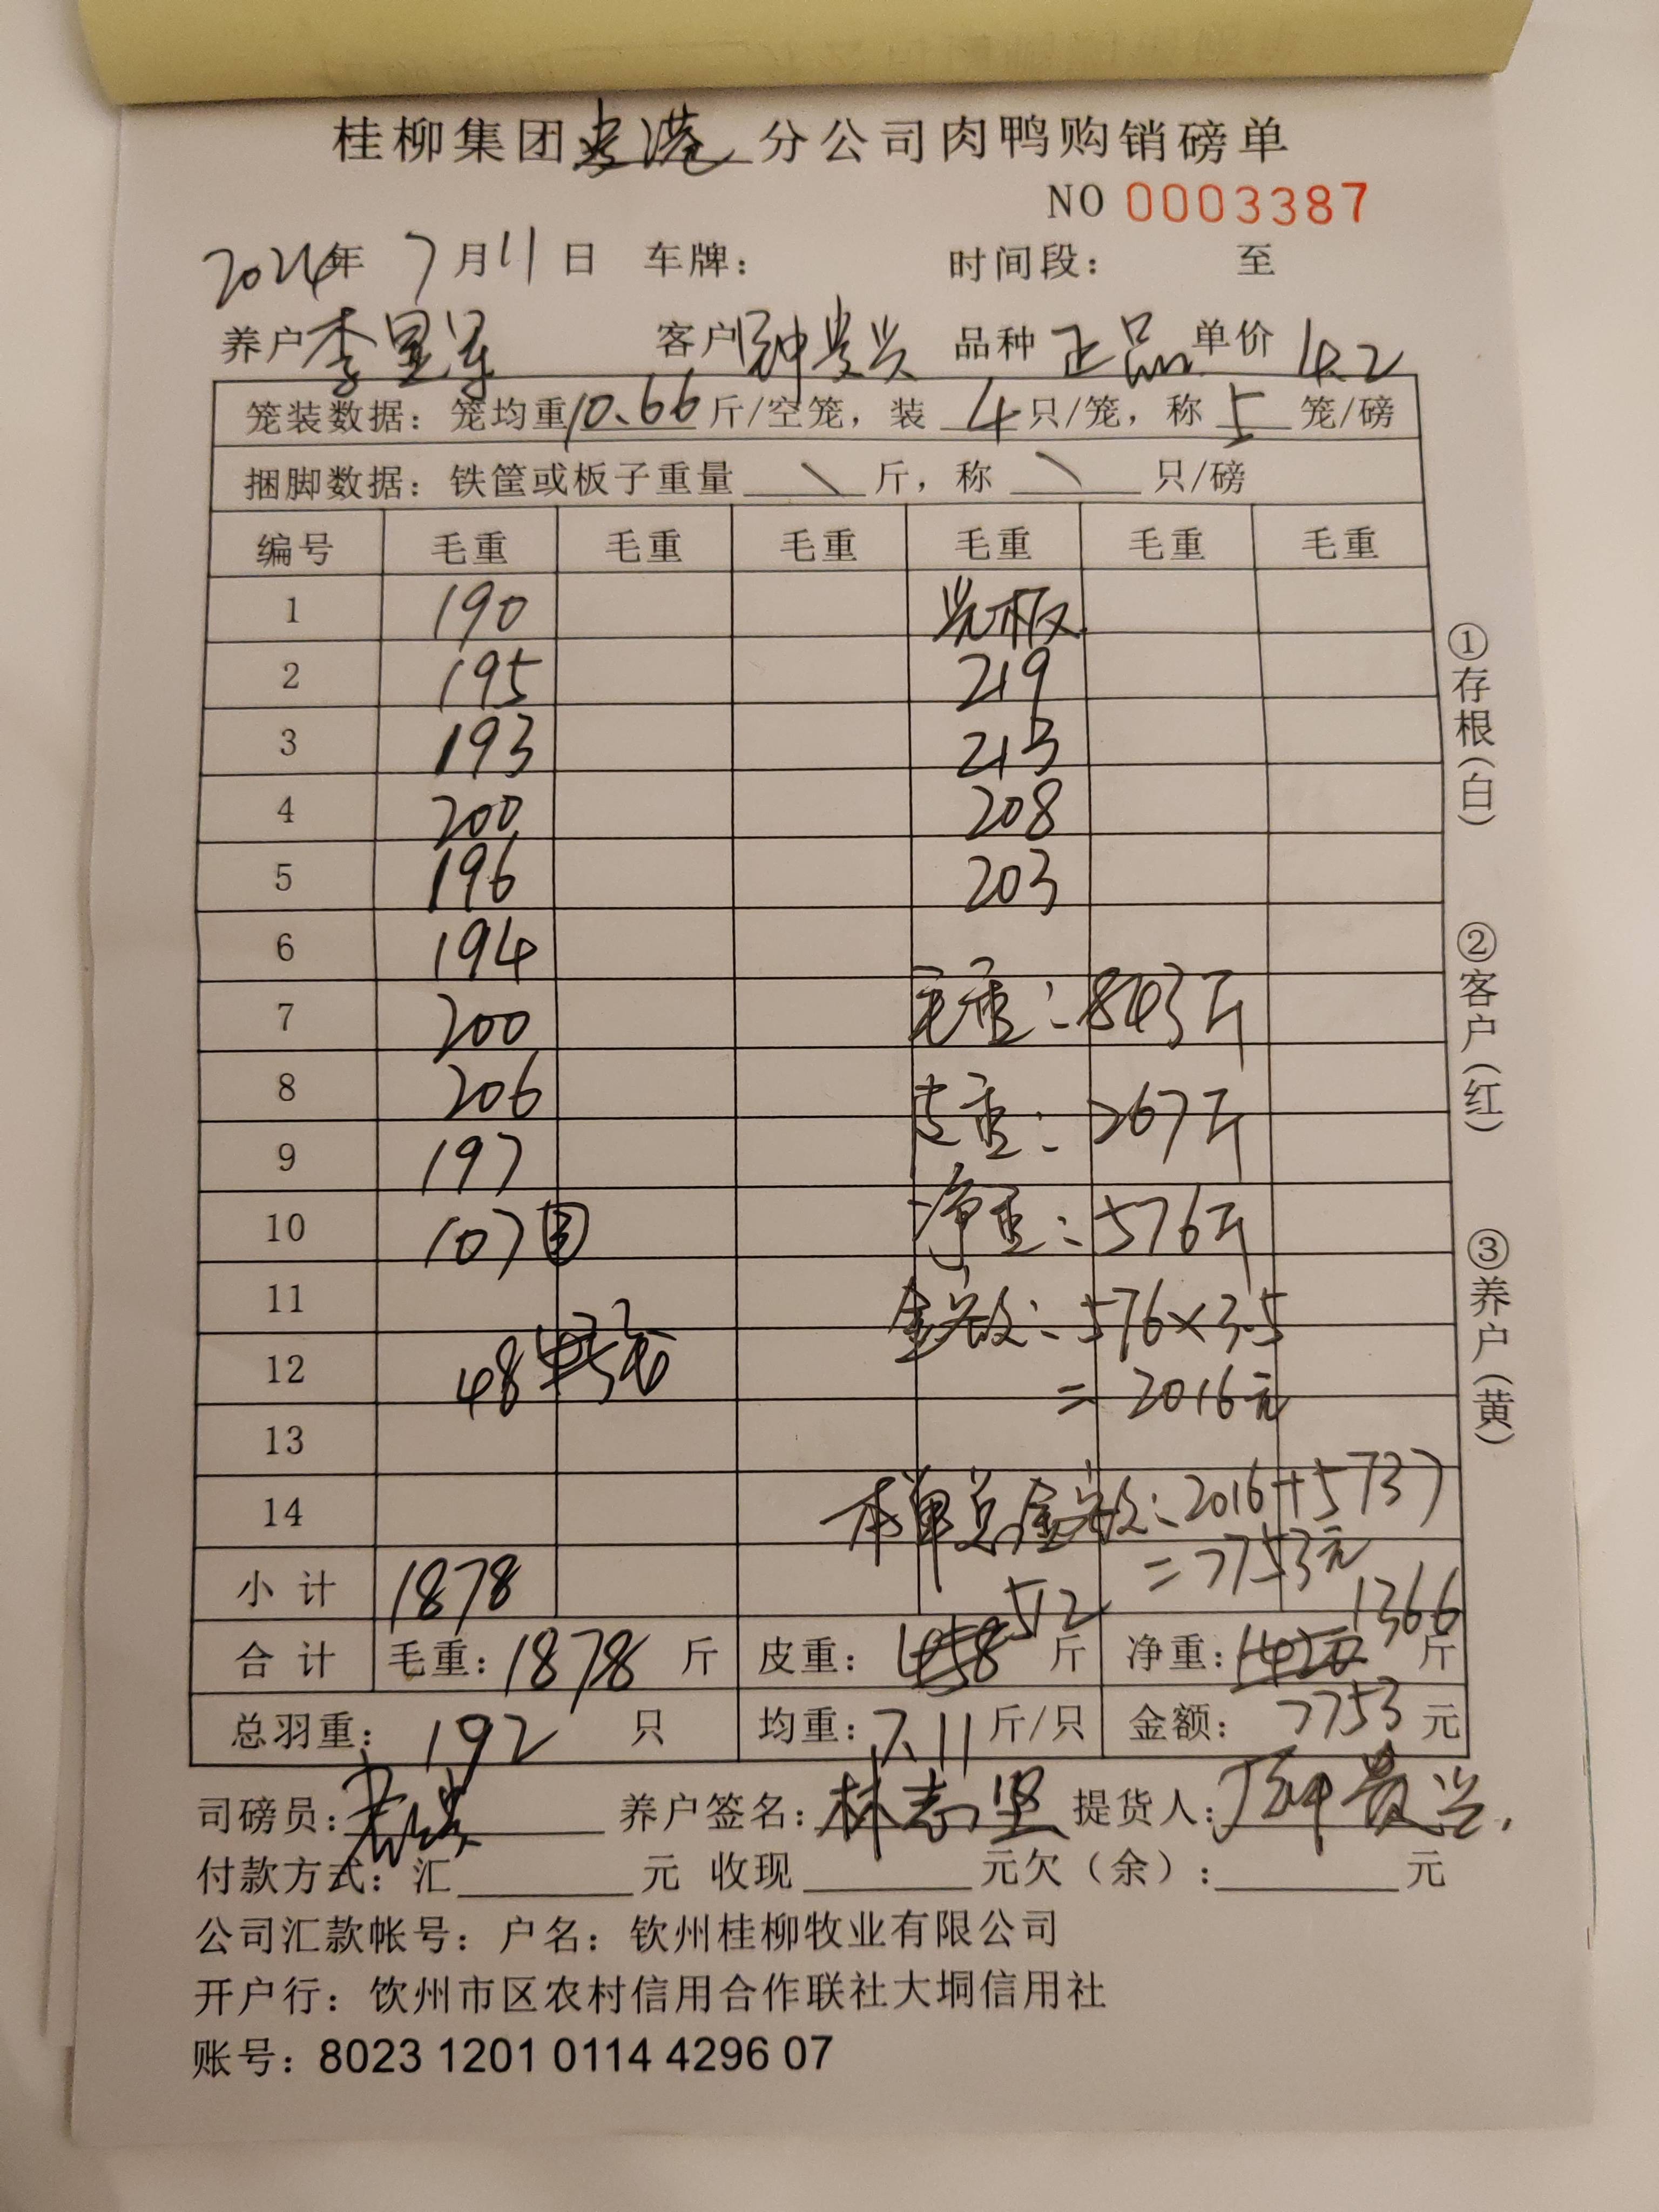 桂柳集团贵港分公司肉鸭购销磅单
NO 0003387
2024年 7月11日 车牌： 时间段： 至
养户李里军 客户钟贵兴 品种 正品 单价 4.2
笼装数据：笼均重10.66斤/空笼，装 4只/笼，称 5 笼/磅
捆脚数据：铁筐或板子重量 \ 斤，称 \ 只/磅
编号 毛重 毛重 毛重 毛重 毛重 毛重
1 190 光板
2 195 219
3 193 213
4 200 208
5 196 203
6 194
7 200 毛重：843斤
8 206 皮重：267斤
9 197 净重：576斤
10 107 ③
11 金额：576×3.5
12 48 = 2016元
13
14 本单总金额：2016+5737
= 7753元
小计 1878
合计 毛重：1878 斤 皮重：458 512 斤 净重：1420 1366 斤
总羽重： 192 只 均重：7.11斤/只 金额： 7753 元
司磅员： 养户签名：林志坚 提货人：钟贵兴
付款方式：汇 元 收现 元欠（余）： 元
公司汇款帐号：户名：钦州桂柳牧业有限公司
开户行：饮州市区农村信用合作联社大垌信用社
账号：8023 1201 0114 4296 07
①存根（白）
②客户（红）
③养户（黄）